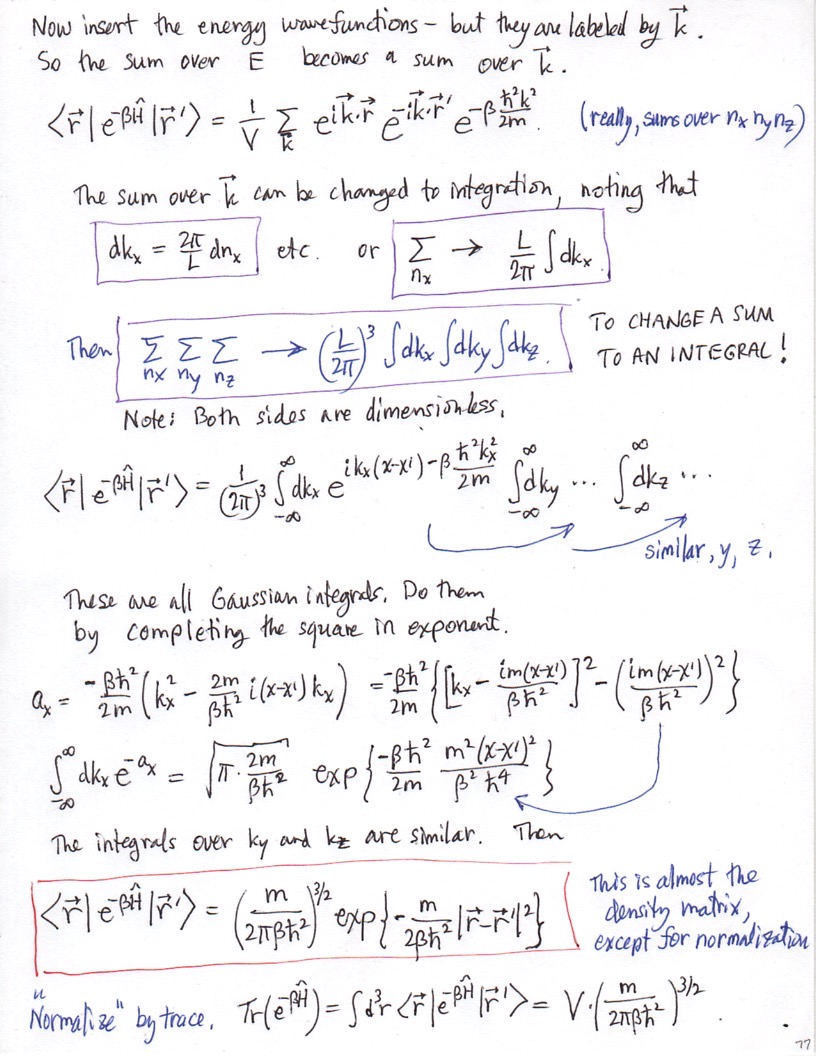 Now insert the energy wavefunctions – but they are labeled by k⃗.
So the sum over E becomes a sum over k⃗.
⟨r⃗|e^{-βĤ}|r⃗'⟩ = 1/V Σ_k⃗ e^{ik⃗·r⃗} e^{-ik⃗·r⃗'} e^{-β ħ²k²/2m}. (really, sums over nx ny nz)
The sum over k⃗ can be changed to integration, noting that
dkx = 2π/L dnx etc. or Σ_{nx} → L/2π ∫dkx.
Then Σ_{nx} Σ_{ny} Σ_{nz} → (L/2π)³ ∫dkx ∫dky ∫dkz. TO CHANGE A SUM
TO AN INTEGRAL!
Note: Both sides are dimensionless.
⟨r⃗|e^{-βĤ}|r⃗'⟩ = 1/(2π)³ ∫_{-∞}^{∞} dkx e^{ikx(x-x') - β ħ²kx²/2m} ∫_{-∞}^{∞} dky ... ∫_{-∞}^{∞} dkz ...
similar, y, z.
These are all Gaussian integrals. Do them
by completing the square in exponent.
ax = -βħ²/2m (kx² - 2m/βħ² i(x-x')kx) = -βħ²/2m {[kx - im(x-x')/βħ²]² - (im(x-x')/βħ²)²}
∫_{-∞}^{∞} dkx e^{-ax} = √(π · 2m/βħ²) exp{-βħ²/2m m²(x-x')²/β²ħ⁴}
The integrals over ky and kz are similar. Then
⟨r⃗|e^{-βĤ}|r⃗'⟩ = (m/2πβħ²)^{3/2} exp{-m/2βħ² |r⃗-r⃗'|²} This is almost the
density matrix,
except for normalization
"Normalize" by trace. Tr(e^{-βĤ}) = ∫d³r ⟨r⃗|e^{-βĤ}|r⃗'⟩ = V·(m/2πβħ²)^{3/2}.
77